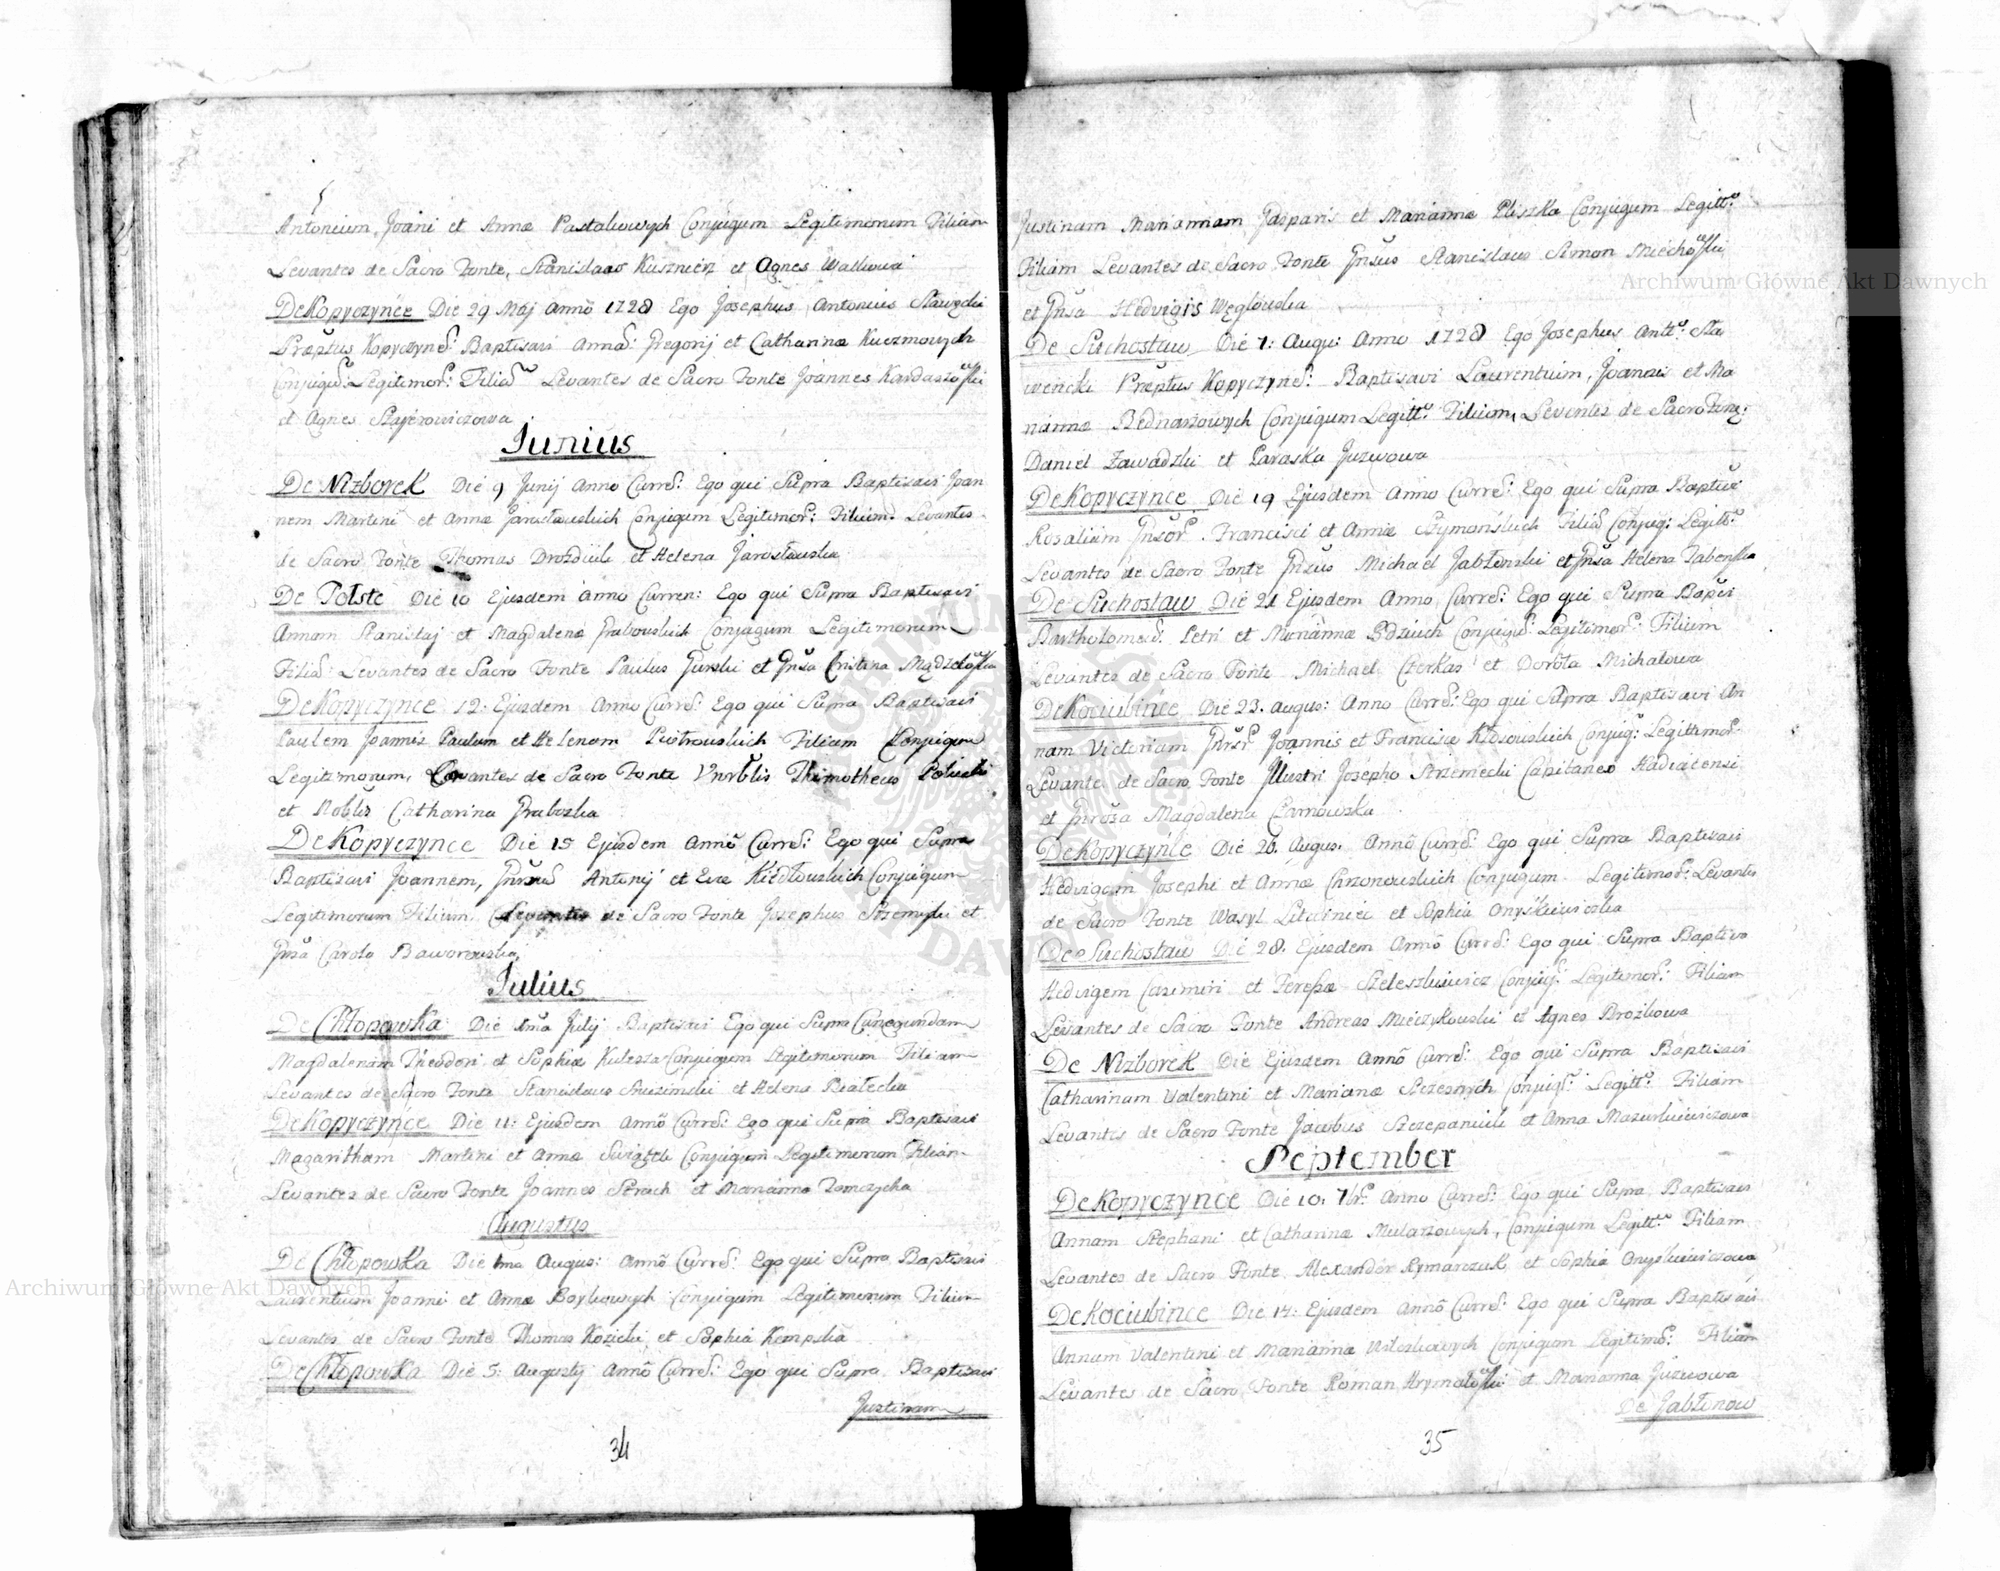 Antonium, Joãni et Annæ Pastaluowych Conjugum Legitimorum Filium
Levantes de Sacro Fonte, Stanislaus Kusznierz et Agnes Watkowa
De Kopyczynce Die 29 Maj Anno 1728 Ego Josephus Antonius Stawęcki
Præptus Kopyczyneñ: Baptisavi Annã: Gregorij et Catharinæ Kuczmowych
Conjugũ: Legitimor: Filiã Levantes de Sacro Fonte Joannes Kardaszowski
et Agnes
Junius
De Nizborek Die 9 Junij Anno Curreñ: Ego qui Supra Baptisavi Joan
nem Martini et Annæ Conjugum Legitimor: Filium Levantes
de Sacro Fonte Thomas et Helena Jarosławska
De Tołste Die 10 Ejusdem Anno Curren: Ego qui Supra Baptisavi
Annam Stanislaj et Magdalenæ Grabowskich Conjugum Legitimorum
Filiã: Levantes de Sacro Fonte Paulus Gurski et Gnsa Cristina
De Kopyczynce 12: Ejusdem Anno Curreñ: Ego qui Supra Baptisavi
Paulem Joannis Paulum et Helenam Piotrowskich Filium Conjugum
Legitimorum, Levantes de Sacro Fonte Thimotheus
et Noblis Catharina Grabozka
De Kopyczynce Die 15 Ejusdem Annõ Curreñ: Ego qui Supra
Baptisavi Joannem, Antonij et Evæ Kiedłowskich Conjugum
Legitimorum Filium, Levantes de Sacro Fonte Josephus et
Gnsa Carola Baworowska,
Julius
De Chłopowka Die 1ma Julij Baptisavi Ego qui Supra Cunegundam
Magdalenam Theodori et Sophiæ Kulesza Conjugum Legitimorum Filiam
Levantes de Sacro Fonte Stanislaus et Helena Białecka
De Kopyczynce Die 11: Ejusdem Annõ Curreñ: Ego qui Supra Baptisavi
Magaritham Martini et Annæ Conjugum Legitimorum Filiam
Levantes de Sacro Fonte Joannes Strach et Marianna Tomczycha
Augustus
De Chłopowka Die 1ma Augus: Annõ Curreñ: Ego qui Supra Baptisavi
Laurentium Joanni et Annæ Boykowych Conjugum Legitimorum Filium
Levantes de Sacro Fonte Thomas Kozicki et Sophia Kempska
De Chłopowka Die 5: Augustj Annõ Curreñ: Ego qui Supra Baptisavi
Justinam
34
Justinam Mariannam Gasparis et Mariannæ Pliszka Conjugum Legitt:
Filiam Levantes de Sacro Fonte Gnsus Stanislaus Simon Miechowski
et Gnsa Hedvigis Węglowska
De Suchostaw Die 7: Augu: Anno 1728 Ego Josephus Antt: Sta
wencki Præptus Kopyczyneñ: Baptisavi Laurentium, Joannis et Ma
riannæ Bednarzowych Conjugum Legitt: Filium, Levantes de Sacro Fonte:
Daniel Zawadzki et Paraska Juzwowa
De Kopyczynce Die 19 Ejusdem Anno Curreñ: Ego qui Supra Baptisavi
Rosaliam Gnsor. Francisci et Annæ Szymańskich Filiã Conjug: Legitt:
Levantes de Sacro Fonte Gnsus Michael Jabłonski et Gnsa Helena
De Suchostaw Die 21 Ejusdem Anno Curreñ: Ego qui Supra Bapsvi
Bartholomeũ: Petri et Mariannæ Conjugũ: Legitimor: Filium
Levantes de Sacro Fonte Michael Czerkas et Dorota Michalowa
De Kociubince Die 23. Augus: Anno Curreñ: Ego qui Supra Baptisavi An
nam Victoriam Joannis et Franciscæ Kłosowskich Conjug: Legittimor:
Levante de Sacro Fonte Illustri Josepho Strzemecki Capitaneo Hadiatensi
et Magdalena Czarnowska
De Kopyczynce Die 26. Augus. Annõ Curreñ: Ego qui Supra Baptisavi
Hedvigem Josephi et Annæ Chrzonowskich Conjugum Legitimoñ: Levantes
de Sacro Fonte Wasyl et Sophia Onyskiewiczka
De Suchostaw Die 28. Ejusdem Annõ Curreñ: Ego qui Supra Baptiso
Hedvigem Casimiri et Teressæ Conjug: Legitimor: Filiam
Levantes de Sacro Fonte Andreas Mieczykowski et Agnes Brozkowa
De Nizborek Die Ejusdem Annõ Curreñ: Ego qui Supra Baptisavi
Catharinam Valentini et Marianæ Szczesnych Conjug: Legitt: Filiam
Levantes de Sacro Fonte Jacobus Szczepaniuk et Anna Mazurkiewiczowa
September
De Kopyczynce Die 10: 7br: Anno Curreñ: Ego qui Supra Baptisavi
Annam Stephani et Catharinæ Mularzowych, Conjugum Legitt: Filiam
Levantes de Sacro Fonte Alexander Rymarzuk et Sophia Onyskiewiczowa
De Kociubince Die 14: Ejusdem Annõ Curreñ: Ego qui Supra Baptisavi
Annam Valentini et Mariannæ Conjugum Legitimõ: Filiam
Levantes de Sacro Fonte Roman et Marianna Juzwowa
De Jabłonow
35
Archiwum Główne Akt Dawnych
Archiwum Główne Akt Dawnych